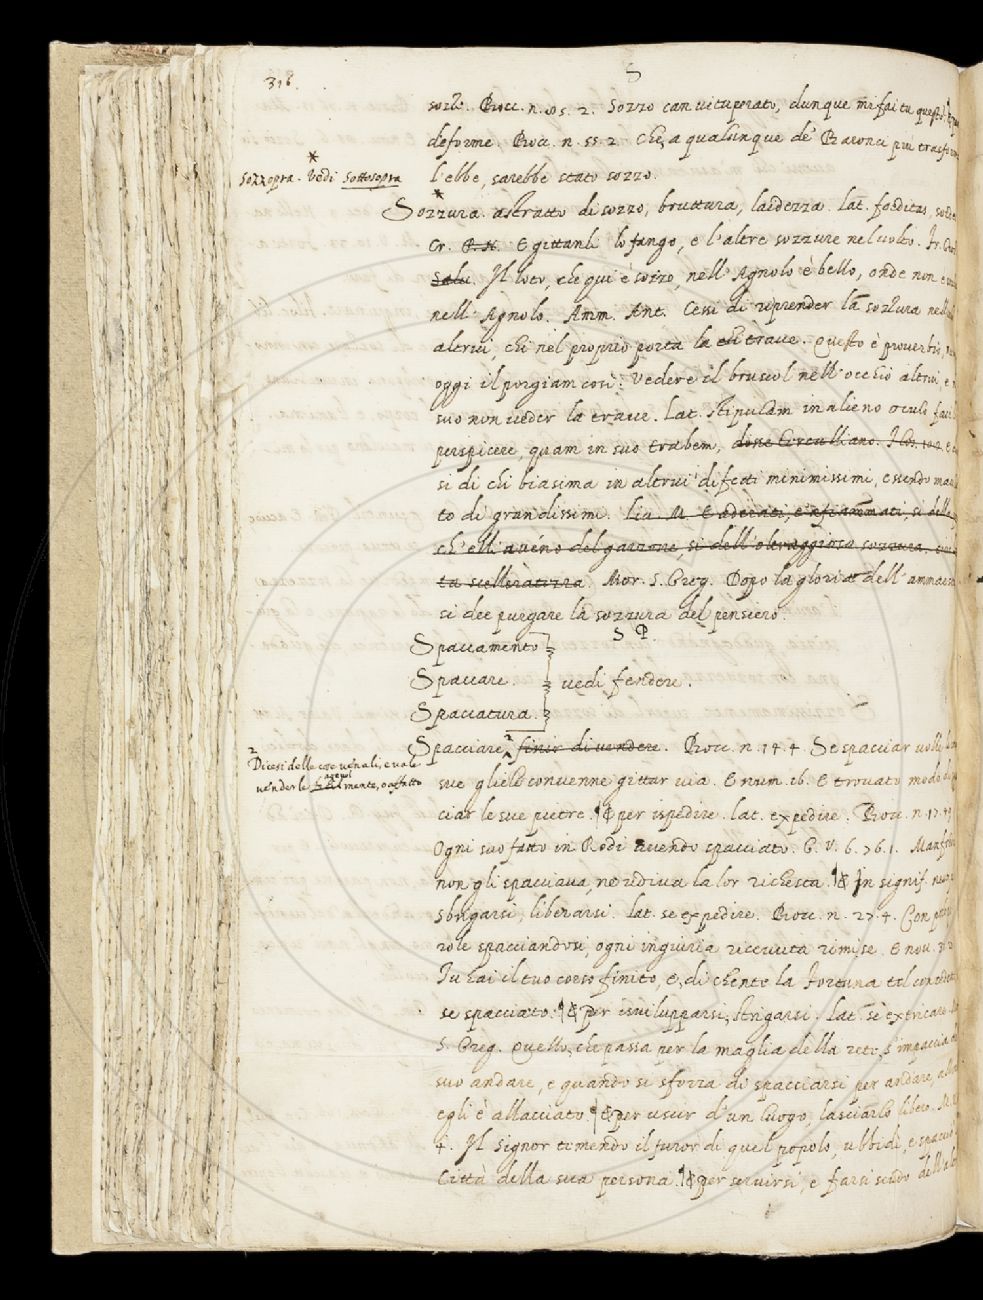 316.
S
sozzo. Bocc. n. 85. 2. Sozzo can vituperato, dunque mi fai tu questo?
deforme. Bocc. n. 55. 2. Che a qualunque de' Baronci più trasfor
l'ebbe, sarebbe stato sozzo.
* Sozzopra. Vedi Sottosopra
* Sozzura. astratto di sozzo, bruttura, laidezza. Lat. foeditas, sorde
Cr. P. N. E gittanli lo fango, e l'altre sozzure nel volto.
Salu. Il loto, che qui è sozzo, nell'Agnolo è bello, onde non è
nell'Agnolo. Amm. Ant. Cessi di riprender la sozzura nell
altrui, chi nel proprio porta la trave. Questo è proverbio,
oggi il porgiam così: Vedere il bruscol nell'occhio altrui, e
suo non veder la trave. Lat. stipulam in alieno oculo
perspicere, quam in suo trabem,
si di chi biasima in altrui difetti minimissimi, essendo mac
to di grandissimi. Liv. M. E adirati, e infiammati, si della
ch'elli aveno del garzone, si dell'oltraggiosa sozzura
ta scelleratezza. Mor. S. Greg. Dopo la gloria dell'ammaes
si dee purgare la sozzura del pensiero.
S P
Spaccamento
Spaccare. vedi fendere.
Spaccatura.
Spacciare, 2 finir di vendere. Bocc. n. 14. 4. Se spacciar volle
2 Dicesi delle cose venali, e vale
venderle agevolmente, o affatto
sue gliele convenne gittar via. E num. 16. E trovato modo di
ciar le sue pietre. ¶ & per ispedire. lat. expedire. Bocc. n. 17. 49
Ogni suo fatto in Rodi avendo spacciato. G. V. 6. 76. 1. Manfre
non gli spacciava, nè udiva la lor richesta. ¶ & In signif. neut.
sbrigarsi, liberarsi. lat. se expedire. Bocc. n. 27. 4. Con
role spacciandosi, ogni ingiuria ricevuta rimise. E nov. 31
Tu hai il tuo corso finito, e, di chente la Fortuna tel concedette
se spacciato. ¶ & per isvilupparsi, strigarsi. Lat. se extricare.
S. Greg. Quello, che passa per la maglia della rete, s'impaccia
suo andare, e quando si sforza di spacciarsi per andare,
egli è allacciato. ¶ & per uscir d'un luogo, lasciarlo libero. M.
4. Il Signor temendo il furor di quel popolo, ubbidì, e spacciò
Città della sua persona. ¶ & per servirsi, e farsi scudo dell'